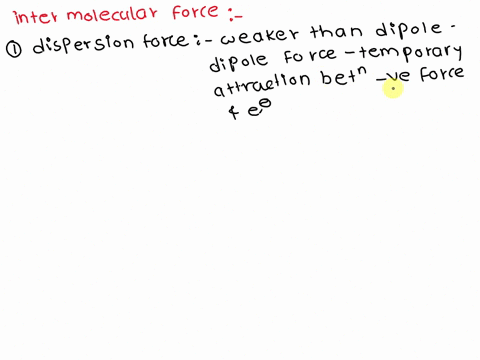 inter molecular force :-
① dispersion force :- weaker than dipole -
dipole force - temporary
attraction betⁿ -ve force
& e⊖